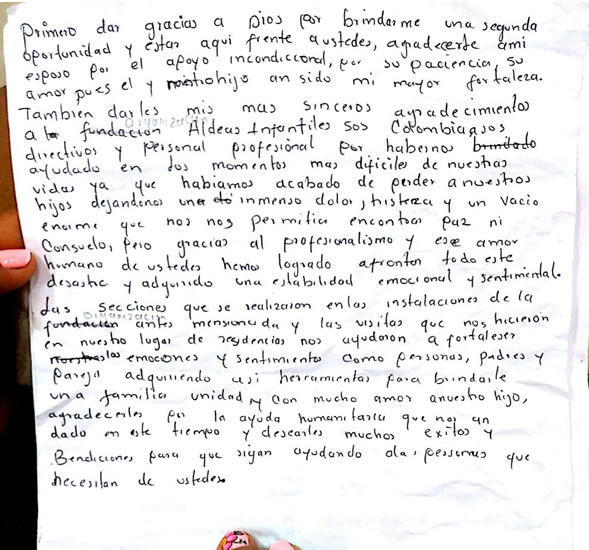 Primero dar gracias a Dios por brindarme una segunda
oportunidad y estar aqui frente a ustedes, agradecerte ami
esposo por el apoyo incondiccional, por su paciencia, su
amor pues el y nuestro hijo an sido mi mayor fortaleza.
Tambien darles mis mas sinceros agradecimientos
organización
a la fundación Aldeas Infantiles SOS Colombia a sus
directivos y personal profesional por habernos brindado
ayudado en los momentos mas dificiles de nuestras
vidas ya que habiamos acabado de perder a nuestros
hijos dejandonos un inmenso dolor, tristeza y un vacio
enorme que nos nos permitia encontrar paz ni
Consuelo, pero gracias al profesionalismo y ese amor
humano de ustedes hemos logrado afrontar todo este
desastre y adquirido una estabilidad emocional y sentimental.
Las secciones que se realizaron en las instalaciones de la
organización
fundación antes mensionada y las visitas que nos hicieron
en nuestro lugar de residencias nos ayudaron a fortaleser
nuestras las emociones y sentimientos como personas, padres y
pareja adquiriendo asi herramientas para brindarle
una familia unidad y con mucho amor anuestro hijo,
agradecerles por la ayuda humanitaria que nos an
dado en este tiempo y desearles muchos exitos y
Bendiciones para que sigan ayudando a la, personas que
necesitan de ustedes.